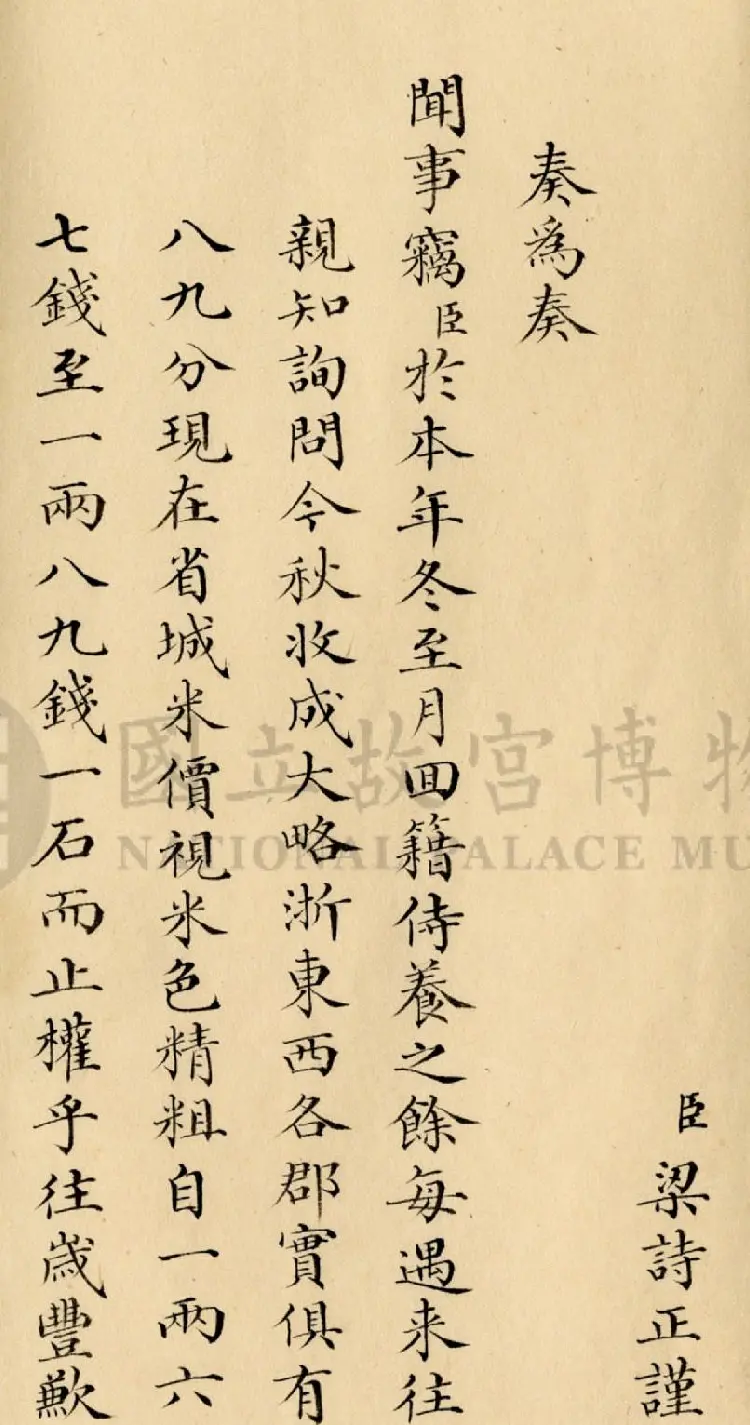 臣梁詩正謹
奏為奏
聞事竊臣於本年冬至月回籍侍養之餘每遇来往
親知詢問今秋收成大略浙東西各郡實俱有
八九分現在省城米價視米色精粗自一兩六
七錢至一兩八九錢一石而止權乎往歲豐歉
國立故宮博物
NATIONAL PALACE MU